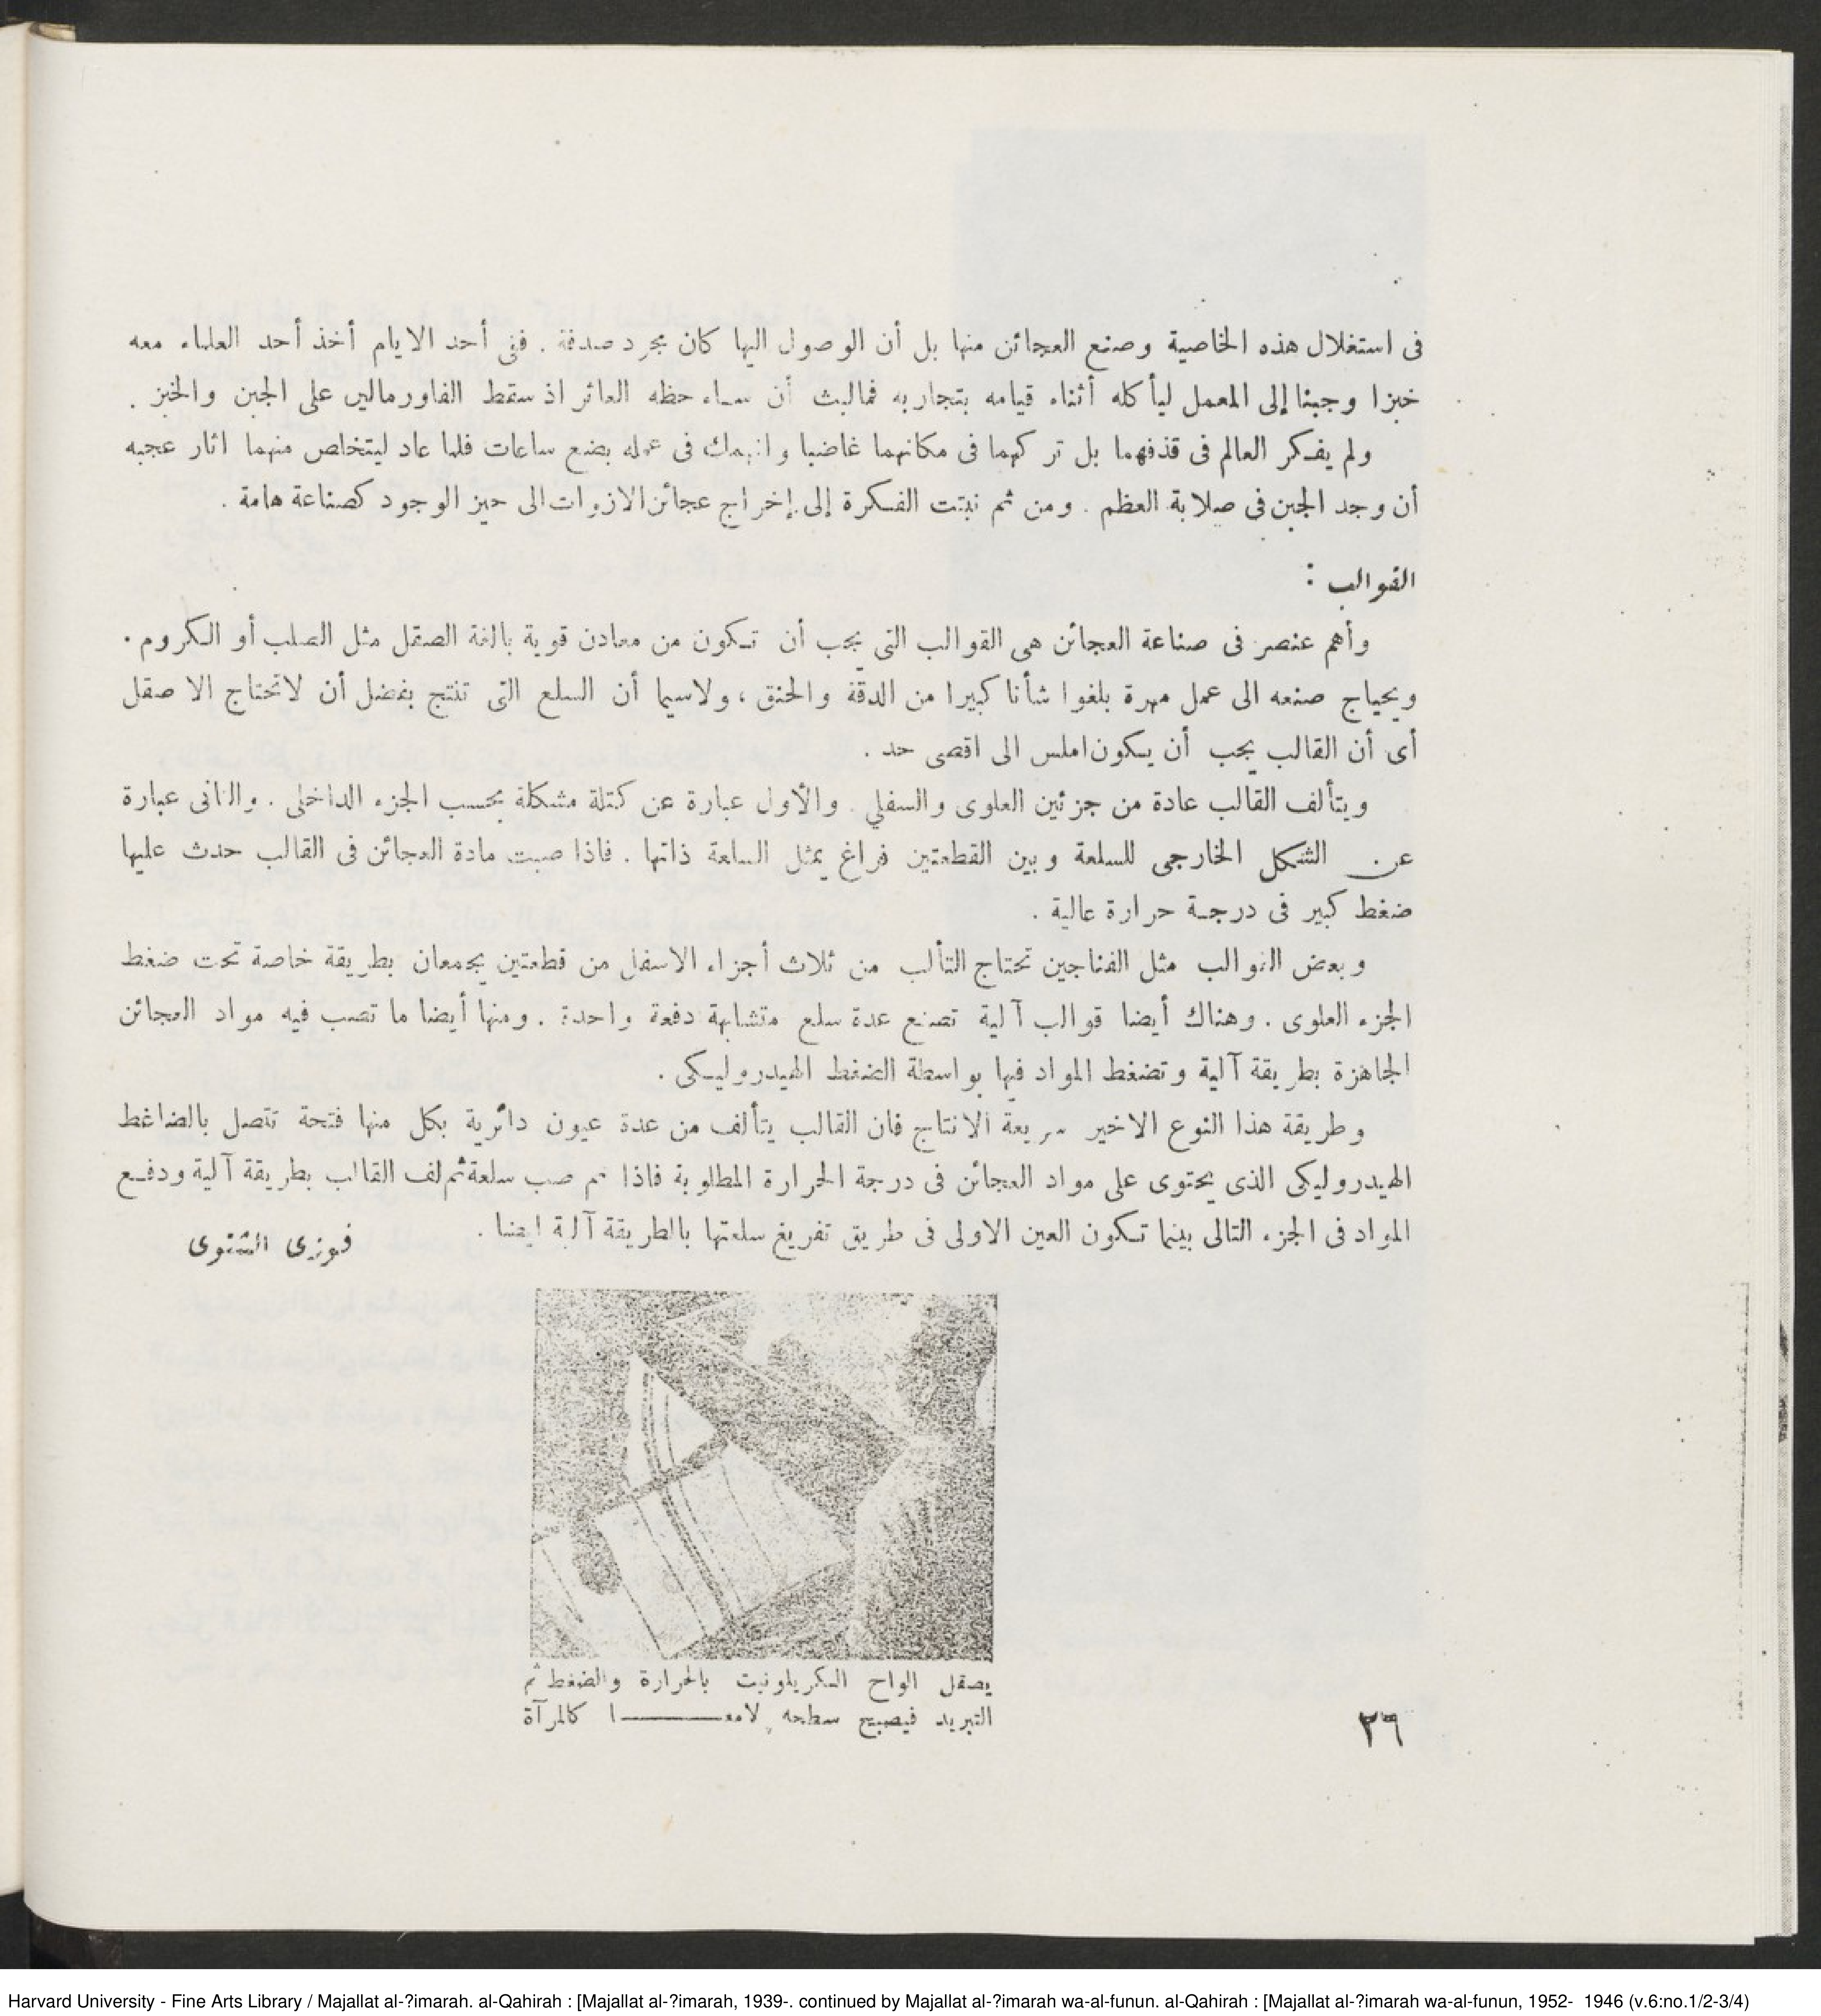 فى استغلال هذه الخاصية وصنع العجائن منها بل أن الوصول اليها كان مجرد صدفة . ففى أحد الايام أخذ أحد العلماء معه
خبزا وجبنا إلى المعمل ليأكله أثناء قيامه بتجاربه فمالبث أن ساء حظه العاثر اذ سقط الفاورمالين على الجبن والخبز .
ولم يفكر العالم فى قذفهما بل تركهما فى مكانهما غاضبا وانهمك فى عمله بضع ساعات فلما عاد ليتخلص منهما اثار عجبه
أن وجد الجبن فى صلابة العظم . ومن ثم نبتت الفكرة إلى إخراج عجائن الازوات الى حيز الوجود كصناعة هامة .
القوالب :
وأهم عنصر فى صناعة العجائن هى القوالب التى يجب أن تكون من معادن قوية بالغة الصقل مثل الصلب أو الكروم .
ويحياج صنعه الى عمل مهرة بلغوا شأنا كبيرا من الدقة والحنق ، ولاسيما أن السلع التى تنتج يفضل أن لاتحتاج الا صقل
أى أن القالب يجب أن يكون املس الى اقصى حد .
ويتألف القالب عادة من جزئين العلوى والسفلي . والأول عبارة عن كتلة مشكلة بحسب الجزء الداخلى . والثانى عبارة
عن الشكل الخارجى للسلعة وبين القطعتين فراغ يمثل السلعة ذاتها . فاذا صبت مادة العجائن فى القالب حدث عليها
ضغط كبير فى درجة حرارة عالية .
وبعض القوالب مثل الفناجين تحتاج التألب من ثلاث أجزاء الاسفل من قطعتين يجمعان بطريقة خاصة تحت ضغط
الجزء العلوى . وهناك أيضا قوالب آلية تصنع عدة سلع متشابهة دفعة واحدة . ومنها أيضا ما تصب فيه مواد العجائن
الجاهزة بطريقة آلية وتضغط المواد فيها بواسطة الضغط الهيدروليكى .
وطريقة هذا النوع الاخير سريعة الانتاج فان القالب يتألف من عدة عيون دائرية بكل منها فتحة تتصل بالضاغط
الهيدروليكى الذى يحتوى على مواد العجائن فى درجة الحرارة المطلوبة فاذا تم صب سلعة ثم لف القالب بطريقة آلية ودفع
المواد فى الجزء التالى بينما تكون العين الاولى فى طريق تفريغ سلعتها بالطريقة آلية ايضا .
فوزى الشتوى
يصقل الواح الكريلونيت بالحرارة والضغط ثم
التبريد فيصبح سطحه لامعـــــا كالمرآة
٢٦
Harvard University - Fine Arts Library / Majallat al-?imarah. al-Qahirah : [Majallat al-?imarah, 1939-. continued by Majallat al-?imarah wa-al-funun. al-Qahirah : [Majallat al-?imarah wa-al-funun, 1952- 1946 (v.6:no.1/2-3/4)